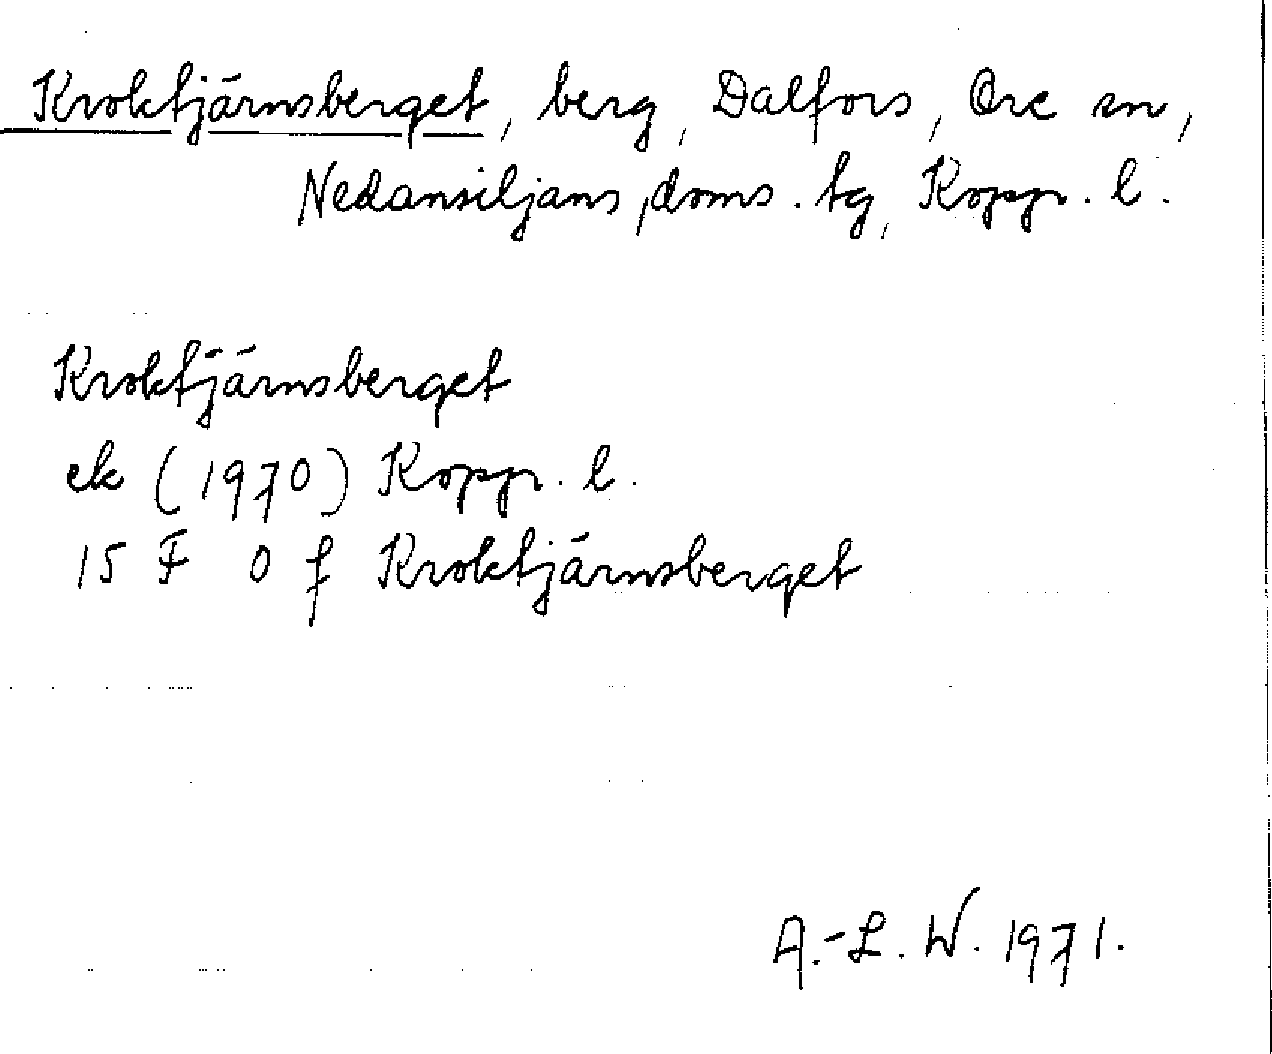 Kroktjärnsberget, berg, Dalfors, Ore sn,
Nedansiljans doms. tg, Koppr. l.
Kroktjärnsberget
ek (1970) Koppr. l.
15 F 0 f Kroktjärnsberget
A.-L. W. 1971.